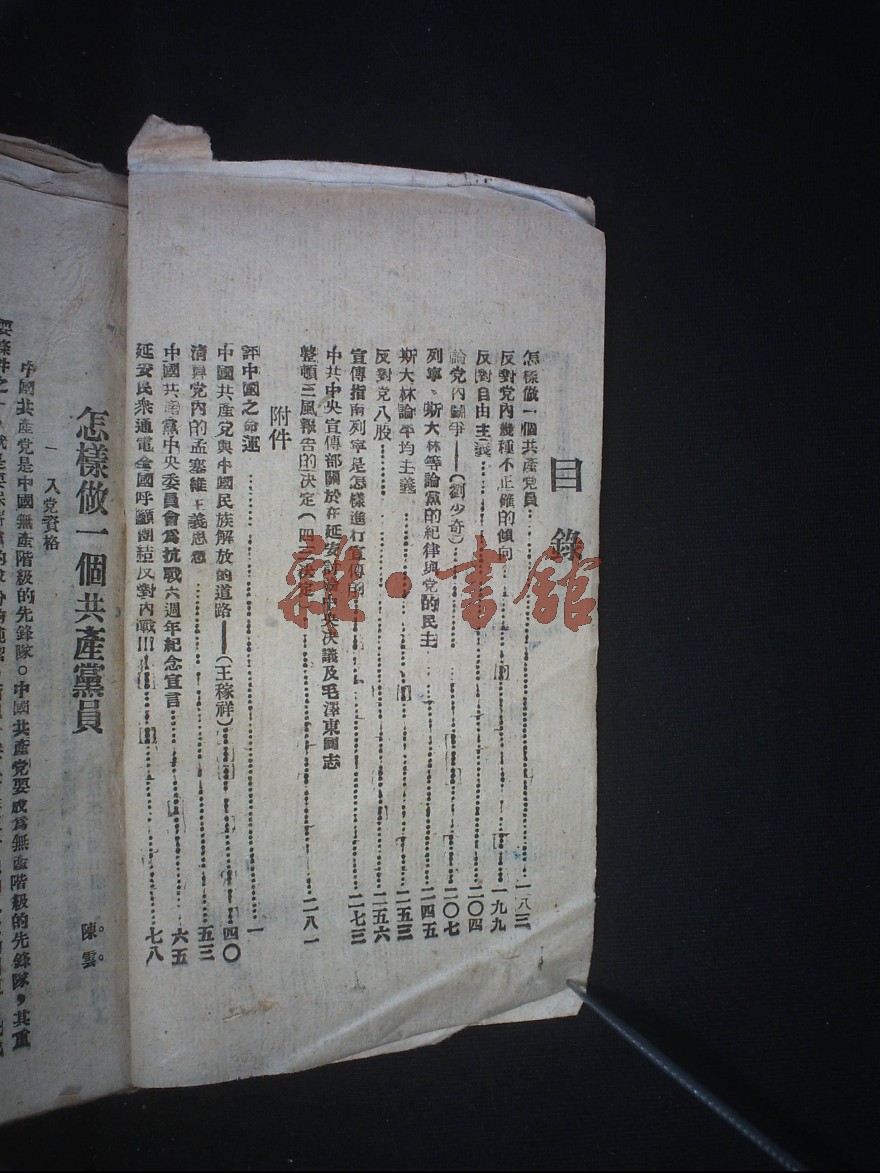 目錄
怎樣做一個共產党員……一八三
反對党內幾種不正確的傾向……一九九
反對自由主義……二〇四
論党內鬭爭——(劉少奇)……二〇七
列寧、斯大林等論黨的紀律與党的民主……二四五
斯大林論平均主義……二五三
反對党八股……二五六
宣傳指南列寧是怎樣進行宣傳的……二七三
中共中央宣傳部關於在延安討論中央決議及毛澤東同志
整頓三風報告的決定(四三決定)……二八一
附件
評中國之命运……一
中國共產党與中國民族解放的道路——(王稼祥)……四〇
清算党內的孟塞維主義思想……五三
中國共產黨中央委員會為抗戰六週年紀念宣言……六五
延安民衆通電全國呼籲團結反對內戰!!!……七八
怎樣做一個共產黨員
陳雲
一 入党資格
中國共產党是中國無產階級的先鋒隊。中國共產党要成爲無產階級的先鋒隊,其重
要條件之一,就是要保
雜·書館